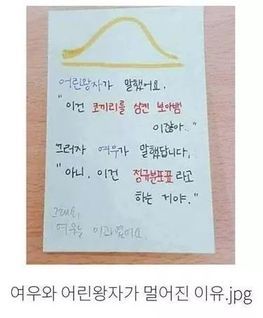 어린왕자가 말했어요.
"이건 코끼리를 삼킨 보아뱀
이잖아.."
그러자 여우가 말했답니다,
"아니. 이건 정규분포표라고
하는 거야."
그래서,
여우는 이과였어요
여우와 어린왕자가 멀어진 이유.jpg